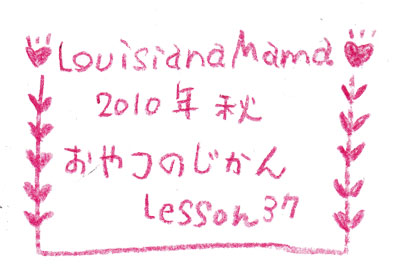 Louisiana Mama
2010年 秋
おやつのじかん
Lesson 37